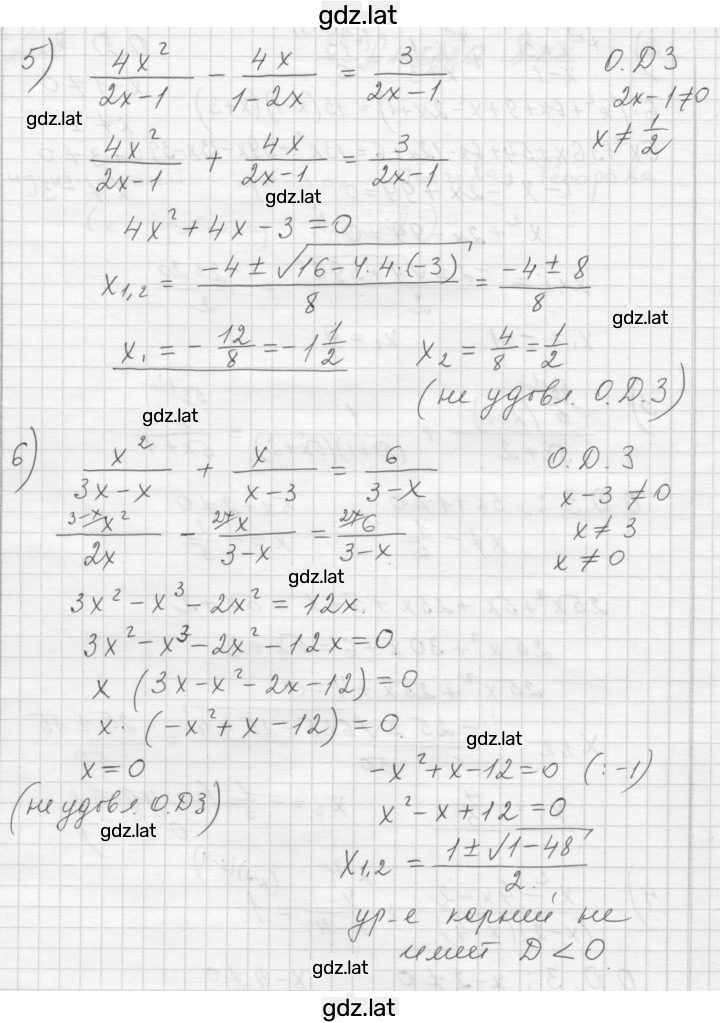 gdz.lat
5) 4x²/(2x-1) - 4x/(1-2x) = 3/(2x-1)
О.Д.З
2x-1≠0
gdz.lat
x≠1/2
4x²/(2x-1) + 4x/(2x-1) = 3/(2x-1)
gdz.lat
4x²+4x-3=0
x₁,₂ = (-4±√(16-4·4·(-3)))/8 = (-4±8)/8
gdz.lat
x₁ = -12/8 = -1 1/2
x₂ = 4/8 = 1/2
(не удовл. О.Д.З)
gdz.lat
6) x²/(3x-x) + x/(x-3) = 6/(3-x)
О.Д.З
x-3≠0
x≠3
x≠0
3-x/ x²/(2x) - 2x/ x/(3-x) = 2x/ 6/(3-x)
gdz.lat
3x²-x³-2x²=12x.
3x²-x³-2x²-12x=0
x (3x-x²-2x-12)=0
x·(-x²+x-12)=0.
gdz.lat
x=0
(не удовл. О.ДЗ)
gdz.lat
-x²+x-12=0 (:-1)
x²-x+12=0
x₁,₂ = (1±√(1-48))/2.
ур-е корней не
имеет D<0.
gdz.lat
gdz.lat